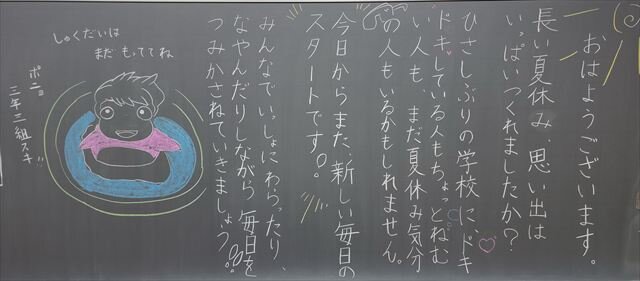 おはようございます。
長い夏休み、思い出は
いっぱいつくれましたか?
ひさしぶりの学校に、ドキ
ドキしている人もちょっとねむ
い人も、まだ夏休み気分
の人もいるかもしれません。
今日からまた、新しい毎日の
スタートです。
みんなでいっしょにわらったり、
なやんだりしながら毎日を
つみかさねていきましょう。
しゅくだいは
まだもっててね
ポニョ
三年三組スキ!!